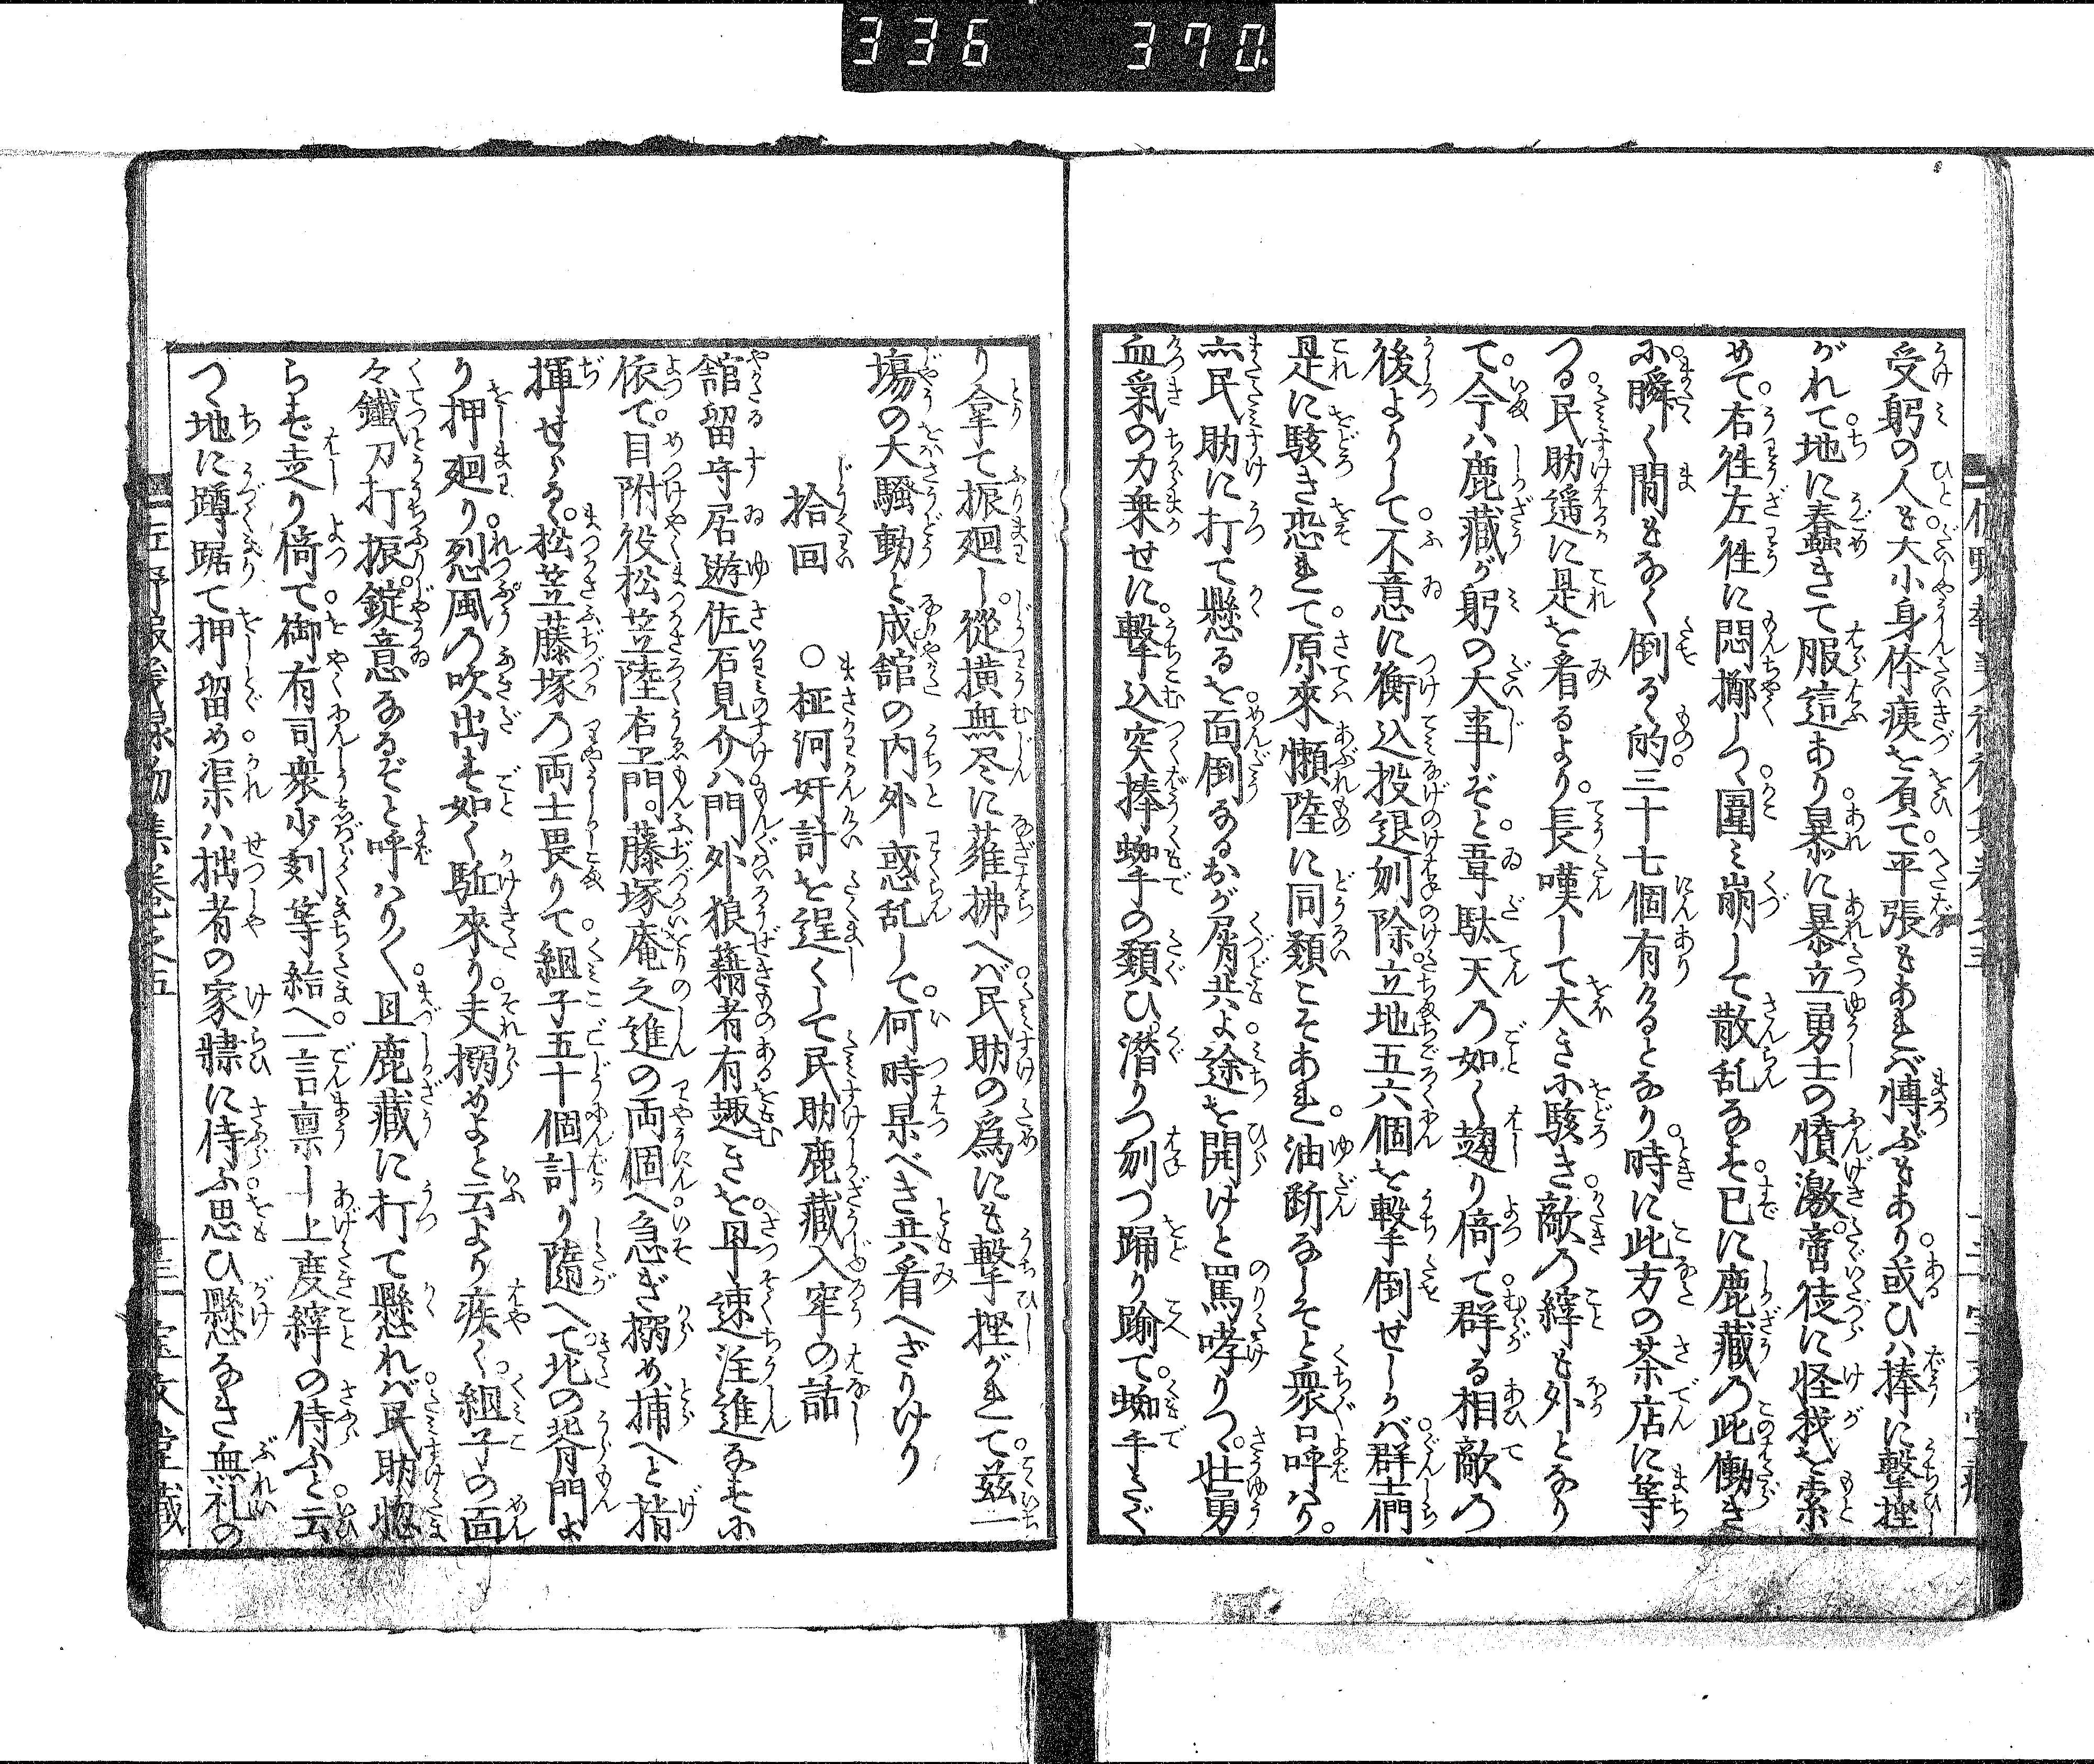 336 370
受躬の人も大小身体痍を負て平張もあれべ慱ぶもあり或ひハ捧に撃挫
がれて地に蠢きて服這あり暴に暴立勇士の憤激啻徒に怪我を索
めて右徃左徃に悶擲しつゝ圍ミ崩して散乱なせ已に鹿藏乃此働き
に瞬く間もなく倒るゝ的三十七個有けるとなり時に此方の茶店に等
つる民助遥に是を看るより長嘆して大きに駭き敵乃縡も外となり
て今ハ鹿藏が躬の大事ぞと韋駄天乃如く趨り倚て群る相敵乃
後よりして不意に衝込投退刎除立地五六個を撃倒せしかバ群士們
是に駭き恐れて原來懶陸に同類こそあれ油断なしそと衆口呼ハり
亦民助に打て懸るを面倒なるおが屑共よ途を開けと罵哮りつゝ壮勇
血氣の力乗せに撃込突捧蜘手の類ひ潜りつ刎つ踊り踰て蜘手さぐ
り拿て振廻し從横無尽に薙拂へバ民助の爲にも撃挫がれて茲一
塲の大騒動と成舘の内外惑乱して何時果べき共看へざりけり
拾回 ○柾河奸計を逞くして民助鹿藏入牢の話
舘留守居遊佐石見介ハ門外狼藉者有趣きを早速注進なせるに
依て目附役松笠陸右エ門藤塚庵之進の両個へ急ぎ搦め捕へと指
揮せらる松笠藤塚乃両士畏りて組子五十個計り隨へて北の背門よ
り押廻り烈風乃吹出せ如く駈來り夫搦めよと云より疾く組子の面
々鐵刀打振錠意なるぞと呼ハり〱且鹿藏に打て懸れバ民助惚
らせ走り倚て御有司衆少刻等給へ一言禀し上度縡の侍ふと云
つゝ地に蹲踞て押留め渠ハ拙者の家隷に侍ふ思ひ懸なき無礼の